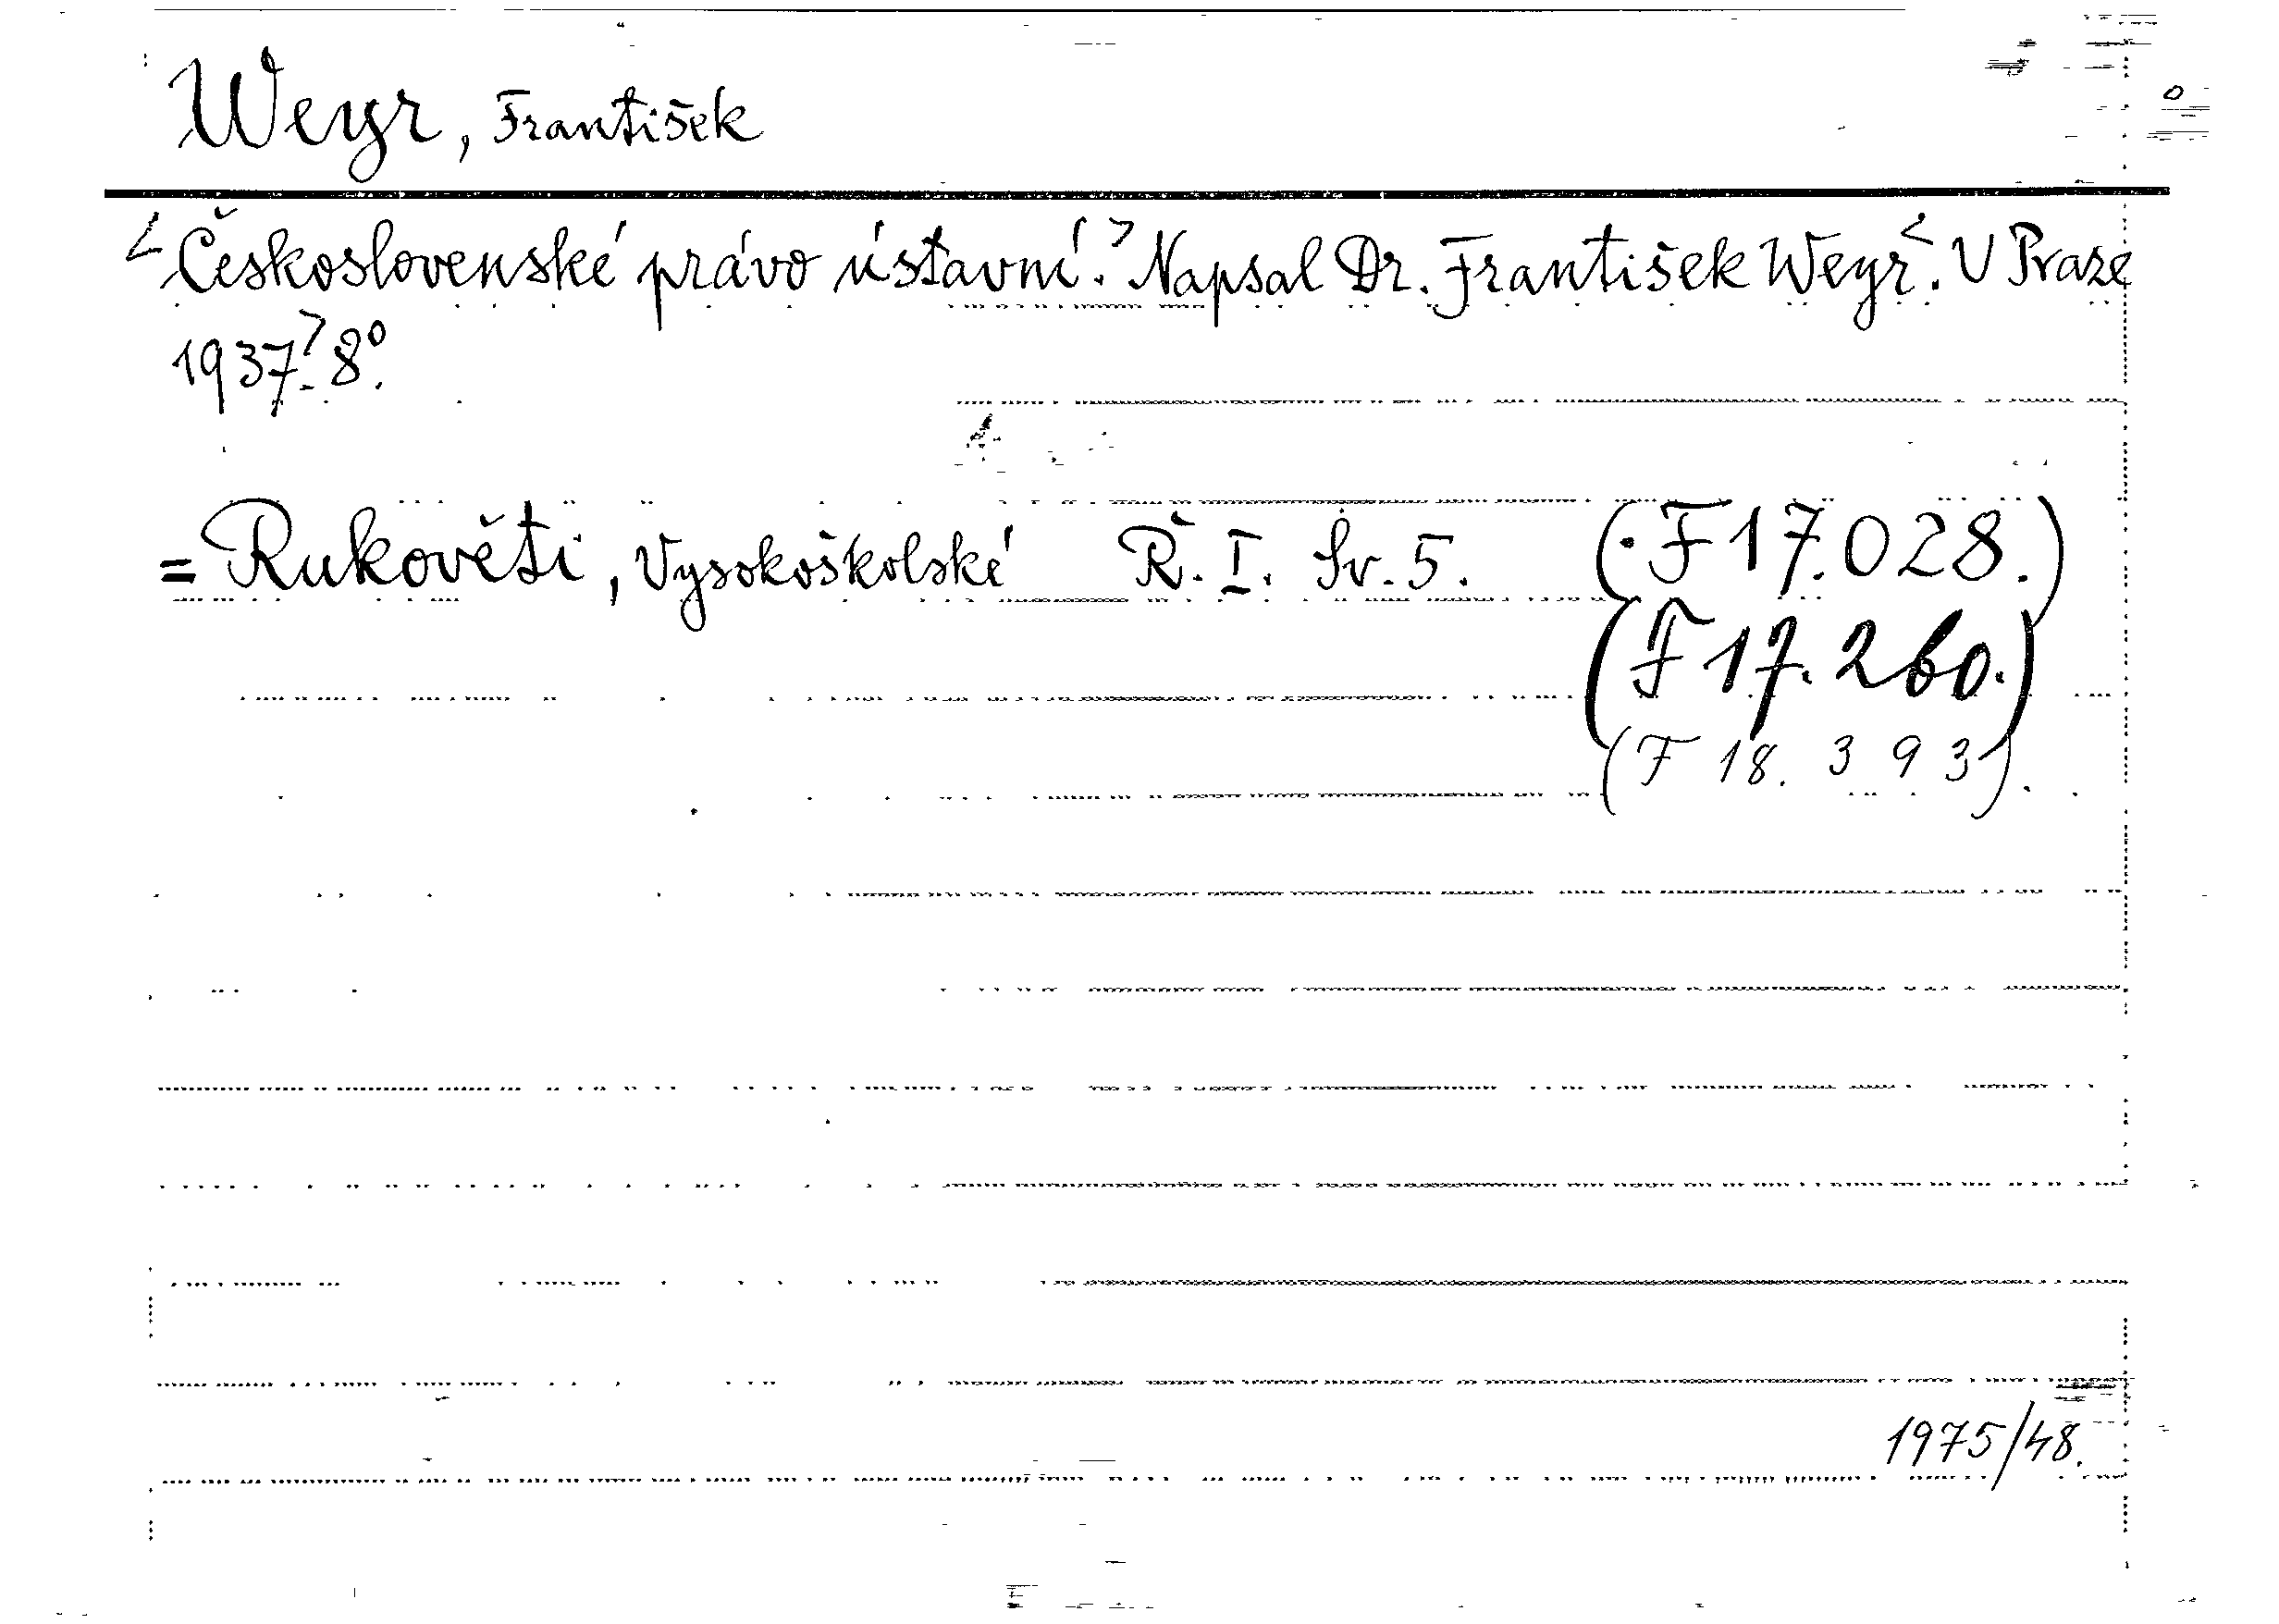 Weyr, František
<Československé právo ústavní.> Napsal Dr. František Weyr<. V Praze
1937.> 8°.
= Rukověti, Vysokoškolské Ř. I. Sv. 5. (·F 17.028.)
(F 17.260.)
(F 18.393).
1975/48.